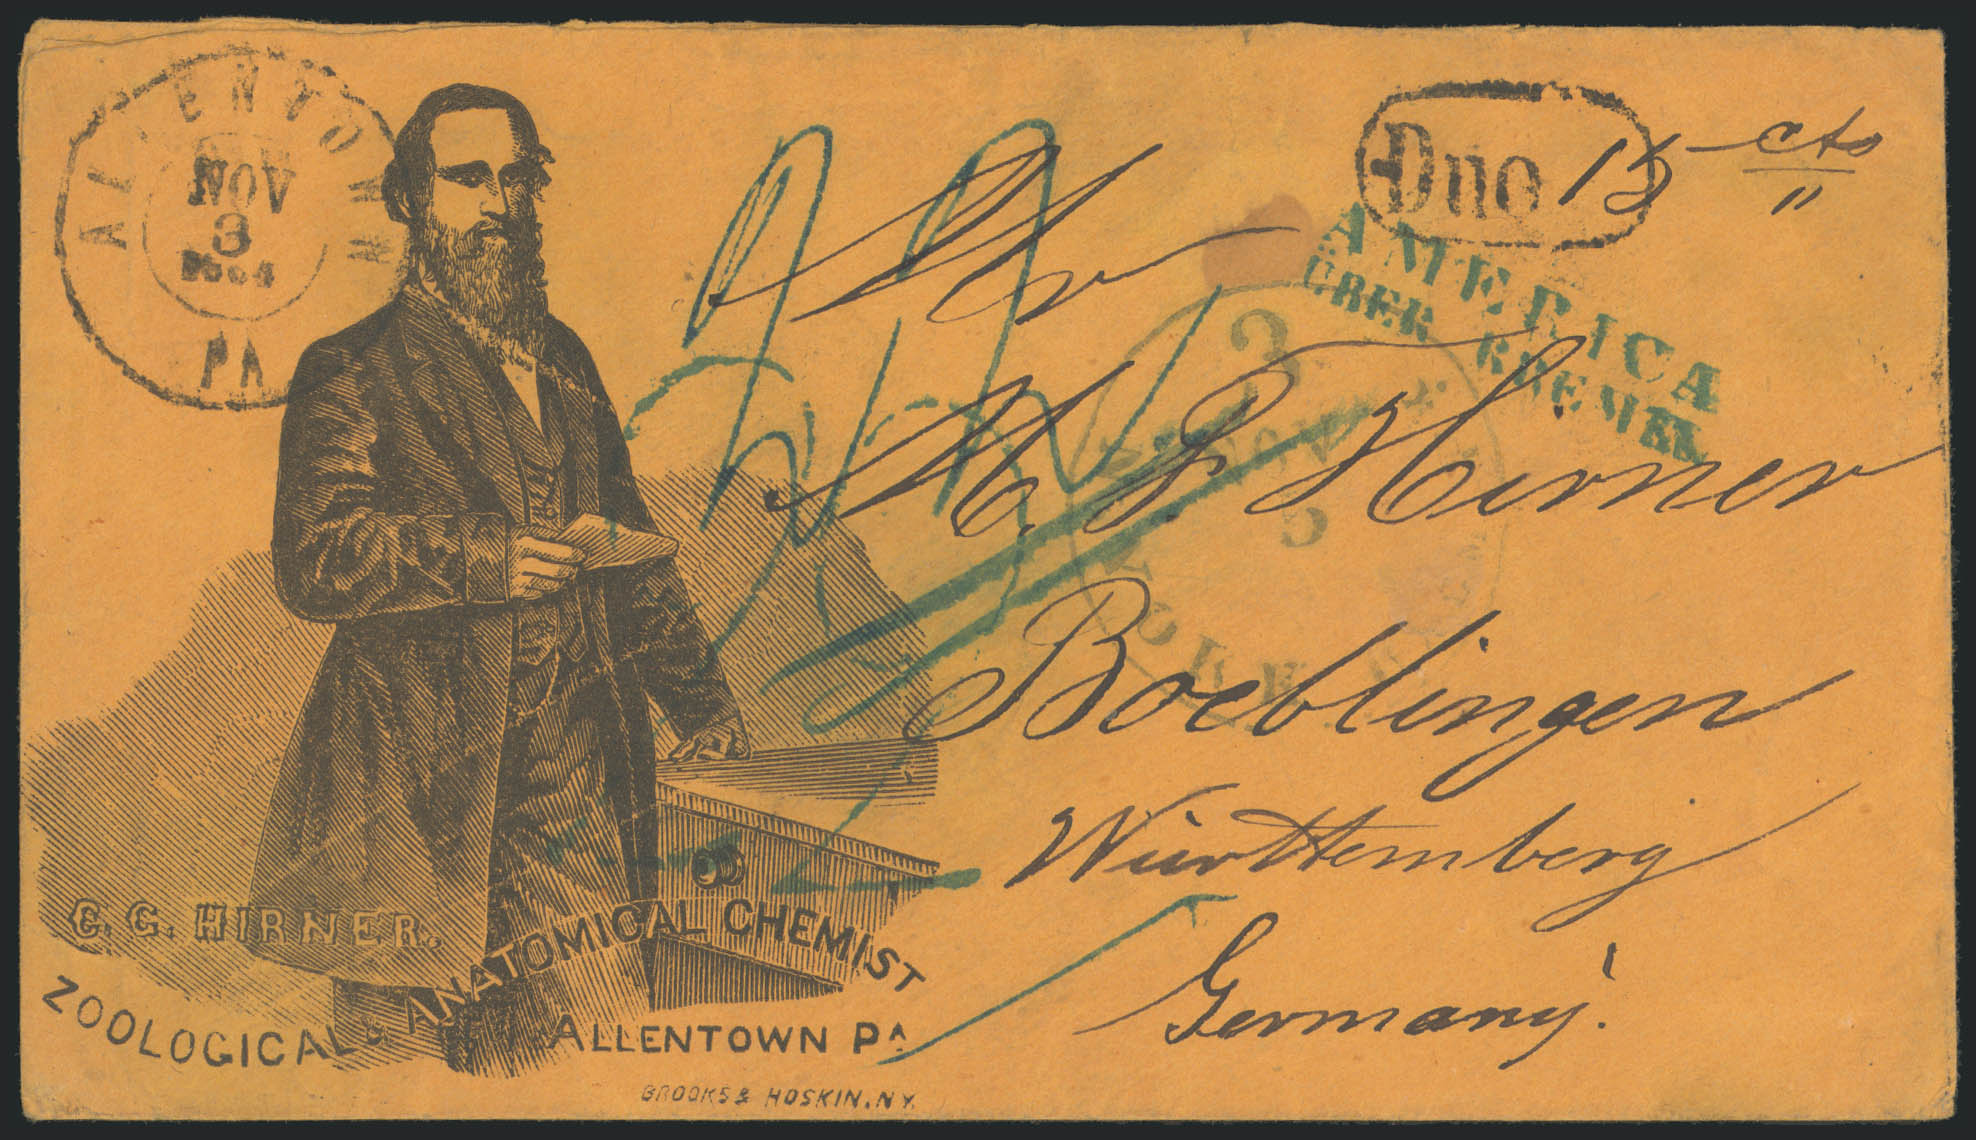 ALLENTOWN
NOV
3
1864
PA
Due 15 cts
"
AMERICA
UBER BREMEN
Mr
M. F. Hirner
Boeblingen
Württemberg
Germany.
C. C. HIRNER.
ZOOLOGICAL & ANATOMICAL CHEMIST
ALLENTOWN PA
BROOKS & HOSKIN, N.Y.